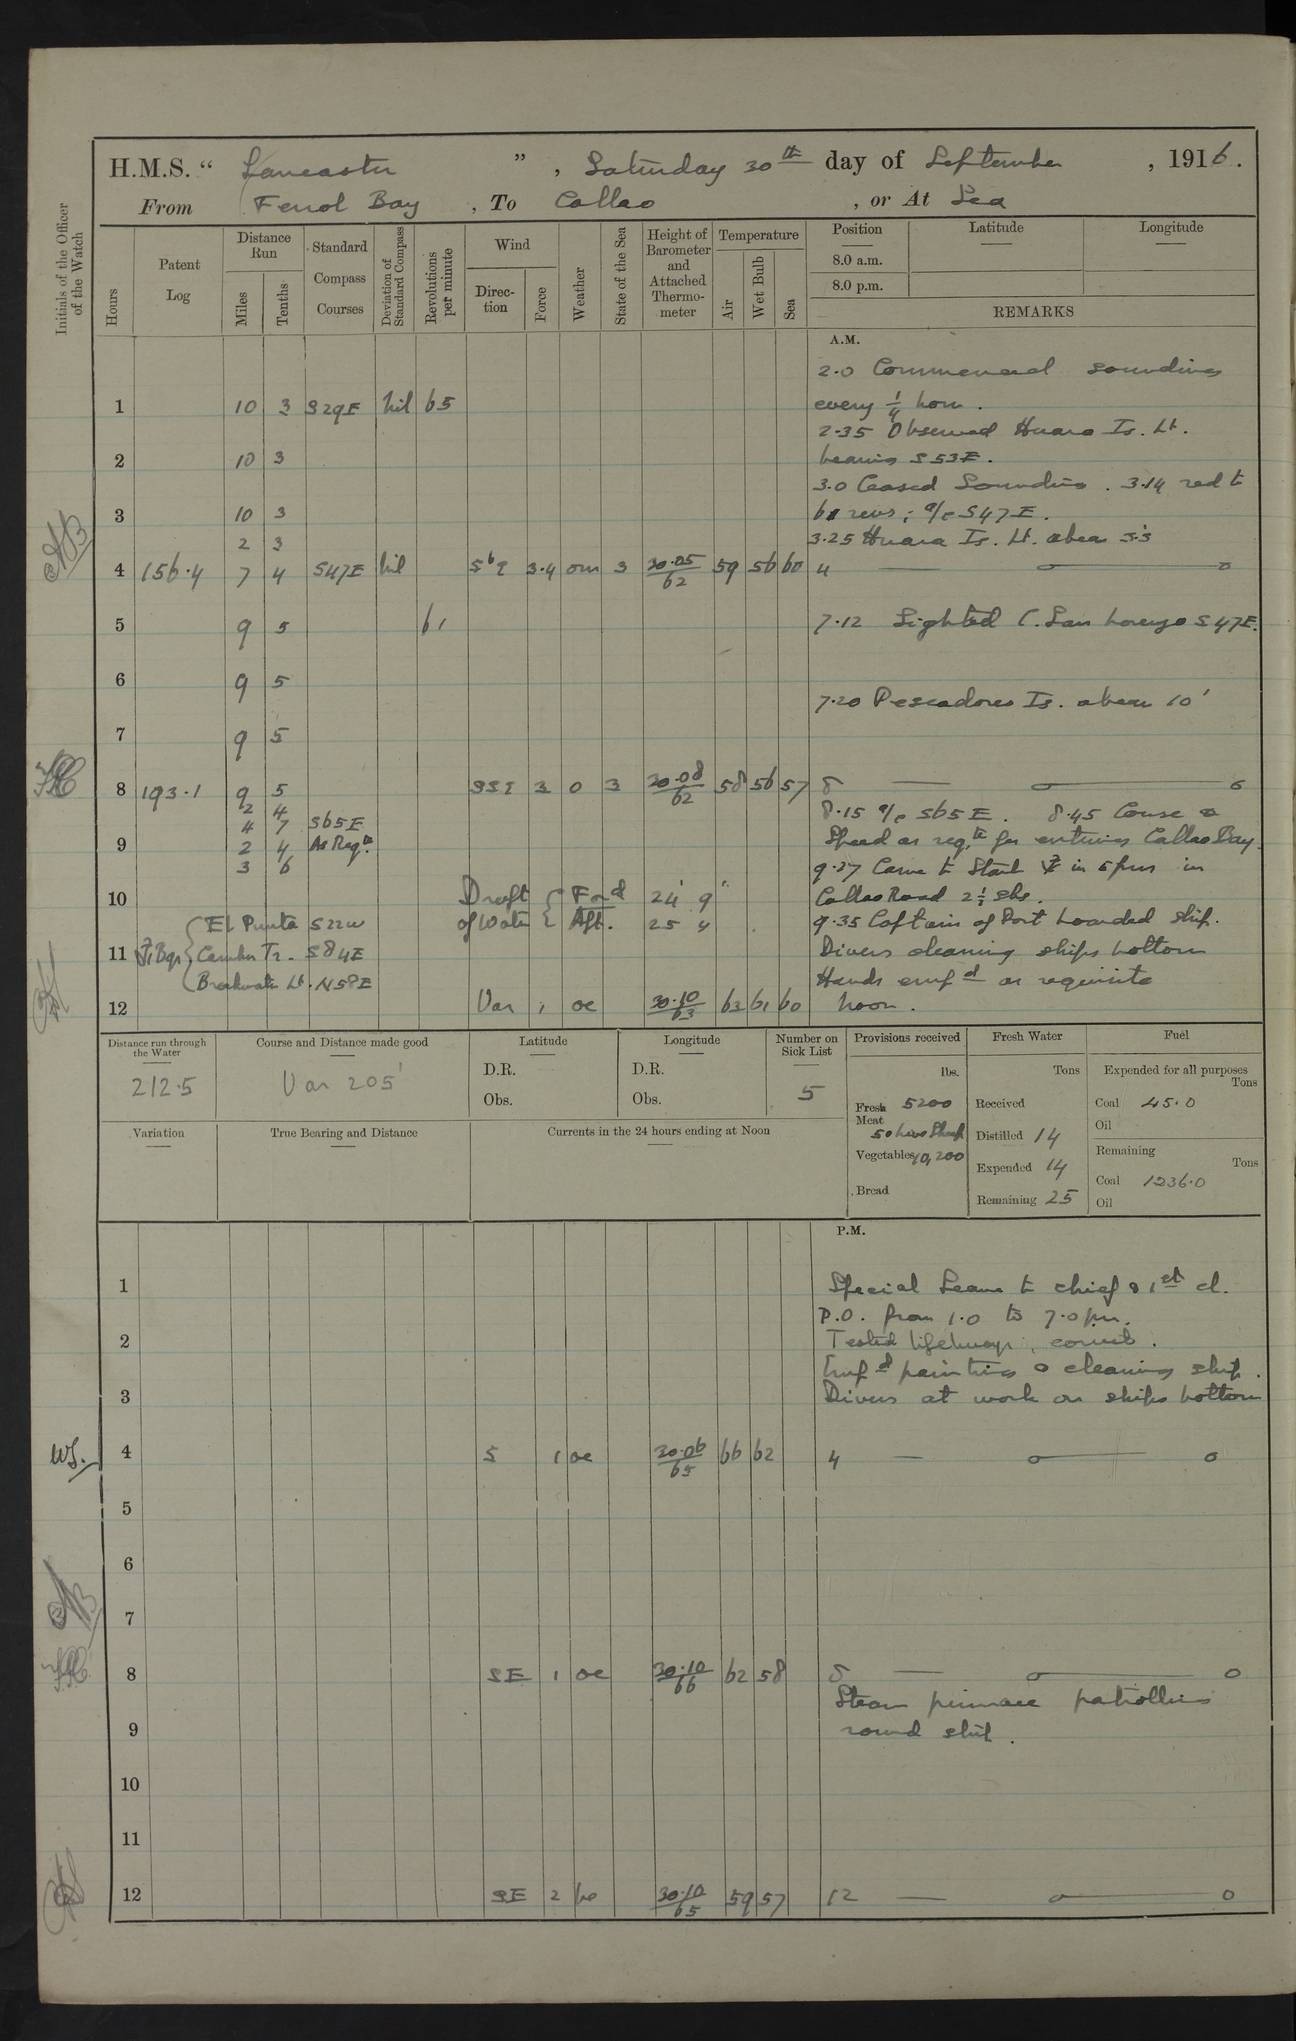 H.M.S. "Lancaster", Saturday 30th day of September, 1916.
From Ferrol Bay, To Callao, or At Sea
Initials of the Officer of the Watch
Hours
Patent Log
Distance Run
Miles
Tenths
Standard Compass Courses
Deviation of Standard Compass
Revolutions per minute
Wind
Direction
Force
Weather
State of the Sea
Height of Barometer and Attached Thermometer
Temperature
Air
Wet Bulb
Sea
Position
8.0 a.m.
8.0 p.m.
Latitude
Longitude
REMARKS
A.M.
2.0 Commenced soundings
1 10 3 S29E Nil 65 every 1/4 hour.
2.35 Observed Huara Is. Lt.
2 10 3 bearing S53E.
3.0 Ceased Sounding. 3.14 red to
3 10 3 61 revs; a/c S47E.
2 3 3.25 Huara Is. Lt. abeam 3.3
4 156.4 7 4 S47E Nil SbE 3.4 om 3 30.05/62 59 56 60 4
5 9 5 61 7.12 Sighted C. San Lorenzo S47E.
6 9 5
7.20 Pescadores Is. abeam 10'
7 9 5
8 193.1 9 5 SSE 3 o 3 30.08/62 58 56 57 8
2 4 8.15 a/c S65E. 8.45 Course &
4 7 S65E
9 2 4 As Reqte. Speed as reqte for entering Callao Bay.
3 6 9.27 Came to Starb in 5 fms in
10 Draft of Water { Ford 24' 9" Callao Road 2 1/2 shs.
Aft. 25 4 9.35 Captain of Port boarded ship.
El Punta S22W
11 Bgs Camber Tr. S84E Divers cleaning ships bottom
Breakwater Lt. N58E Hands empd as requisite
12 Var 1 oc 30.10/63 63 61 60 Noon.
Distance run through the Water
212.5
Course and Distance made good
Var 205'
Latitude
D.R.
Obs.
Longitude
D.R.
Obs.
Number on Sick List
5
Provisions received
lbs.
Fresh Meat 5200
50 live Sheep
Vegetables 10,200
Bread
Fresh Water
Tons
Received
Distilled 14
Expended 14
Remaining 25
Fuel
Expended for all purposes
Tons
Coal 45.0
Oil
Remaining
Tons
Coal 1236.0
Oil
Variation
True Bearing and Distance
Currents in the 24 hours ending at Noon
P.M.
1 Special Leave to chief & 1st cl.
P.O. from 1.0 to 7.0 p.m.
2 Tested lifebuoys, correct.
Empd painting & cleaning ship.
3 Divers at work on ships bottom
4 S 1 oc 30.06/65 66 62 4
5
6
7
8 SE 1 oc 30.10/66 62 58 8
Steam pinnace patrolling
9 round ship.
10
11
12 SE 2 bc 30.10/65 59 57 12